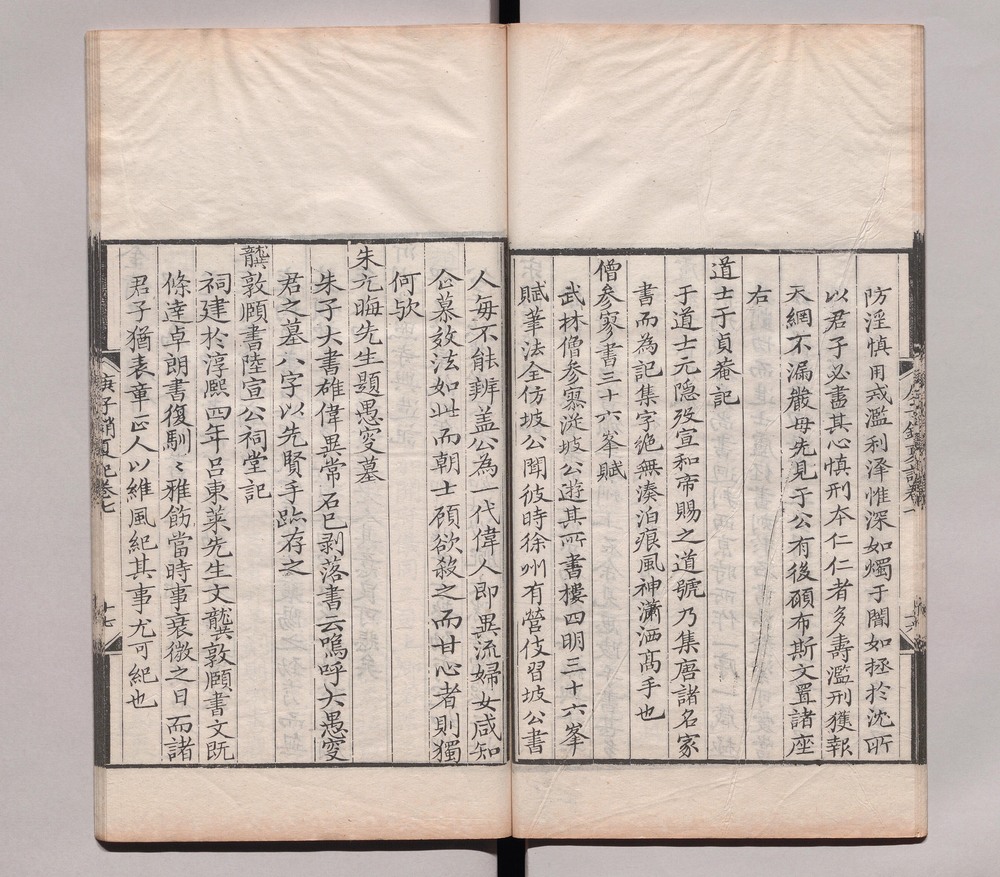 防淫慎用戎濫利泽惟深如燭于闇如拯於沈所
以君子必盡其心慎刑夲仁仁者多壽濫刑獲報
天網不漏嚴母先見于公有後碩布斯文置諸座
右
道士于貞菴記
于道士元隐攷宣和帝賜之道號乃集唐諸名家
書而為記集字絶無湊泊痕風神瀟洒髙手也
僧参寥書三十六峯賦
武林僧参寥従坡公遊其所書樓四明三十六峯
賦筆法全仿坡公聞彼時徐州有營伎習坡公書
人每不能辨盖公為一代偉人即異流婦女咸知
仚慕效法如此而朝士碩欲殺之而甘心者則獨
何欤
朱元晦先生題愚叟墓
朱子大書碓偉異常石已剥落書云嗚呼大愚叟
君之墓八字以先賢手跡存之
龔敦願書陸宣公祠堂記
祠建於淳熙四年吕東莱先生文龔敦願書文既
條達卓朗書復馴〻雅飭當時事衰微之日而諸
君子猶表章正人以維風紀其事尤可紀也
庚子銷夏記卷七
十七